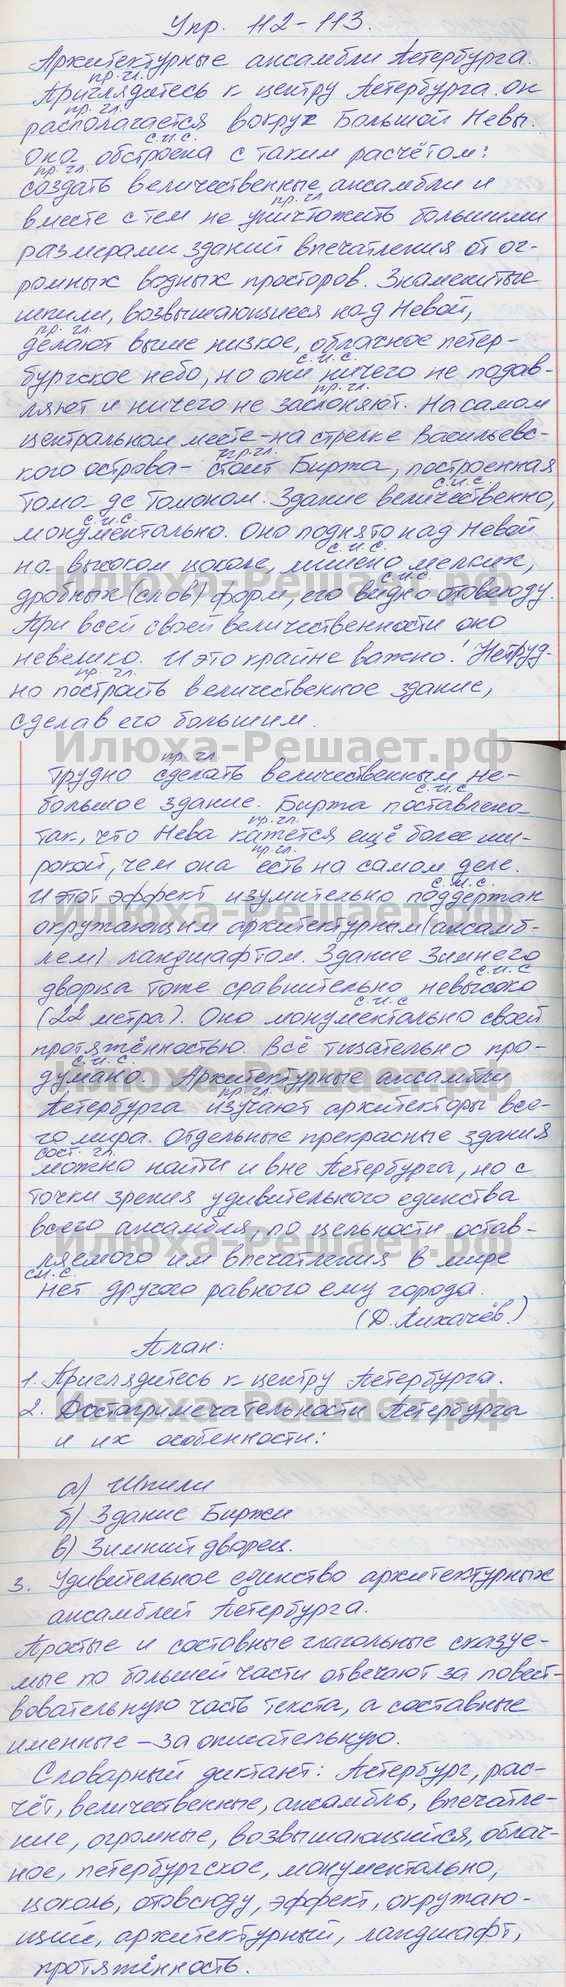 Упр. 112-113.
Архитектурные ансамбли Петербурга.
пр. гл.
Приглядитесь к центру Петербурга. он
пр. гл.
располагается вокруг Большой Невы.
с.и.с.
Она обстроена с таким расчётом:
пр. гл.
создать величественные ансамбли и
пр. гл.
вместе с тем не уничтожить большими
размерами зданий впечатления от ог-
ромных водных просторов. Знаменитые
шпили, возвышающиеся над Невой,
пр. гл.
делают выше низкое, облачное петер-
с.и.с.
бургское небо, но они ничего не подав-
пр. гл.
ляют и ничего не заслоняют. На самом
центральном месте - на стрелке Васильевс-
пр. гл.
кого острова - стоит Биржа, построенная
с.и.с.
Тома де Томоном. Здание величественно,
с.и.с.
монументально. Оно поднято над Невой
с.и.с.
на высоком цоколе, лишено мелких,
с.и.с.
дробных (слов) форм, его видно отовсюду.
При всей своей величественности оно
невелико. И это крайне важно! Нетруд-
пр. гл.
но построить величественное здание,
сделав его большим.
пр. гл.
трудно сделать величественным не-
с.и.с
большое здание. Биржа поставлена
пр. гл.
так, что Нева кажется ещё более ши-
пр. гл.
рокой, чем она есть на самом деле.
с.и.с.
И этот эффект изумительно поддержан
окружающим архитектурным (ансамб-
лем) ландшафтом. Здание Зимнего
с.и.с
дворца тоже сравнительно невысоко
с.и.с
(22 метра). Оно монументально своей
протяжённостью. Всё тщательно про-
с.и.с.
думано. Архитектурные ансамбли
пр. гл.
Петербурга изучают архитекторы все-
го мира. Отдельные прекрасные здания
сост. гл.
можно найти и вне Петербурга, но с
точки зрения удивительного единства
всего ансамбля, по цельности остав-
ляемого им впечатления в мире
с.и.с.
нет другого равного ему города.
(Д. Лихачёв.)
План:
1. Приглядитесь к центру Петербурга.
2. Достопримечательности Петербурга
и их особенности:
а) Шпили
б) Здание Биржи
в) Зимний дворец.
3. Удивительное единство архитектурных
ансамблей Петербурга.
Простые и составные глагольные сказуе-
мые по большей части отвечают за повест-
вовательную часть текста, а составные
именные - за описательную.
Словарный диктант: Петербург, рас-
чёт, величественные, ансамбль, впечатле-
ние, огромные, возвышающийся, облач-
ное, петербургское, монументально,
цоколь, отовсюду, эффект, окружаю-
щий, архитектурный, ландшафт,
протяжённость.
Илюха-Решает.рф
Илюха-Решает.рф
Илюха-Решает.рф
Илюха-Решает.рф
Илюха-Решает.рф
Илюха-Решает.рф
Илюха-Решает.рф